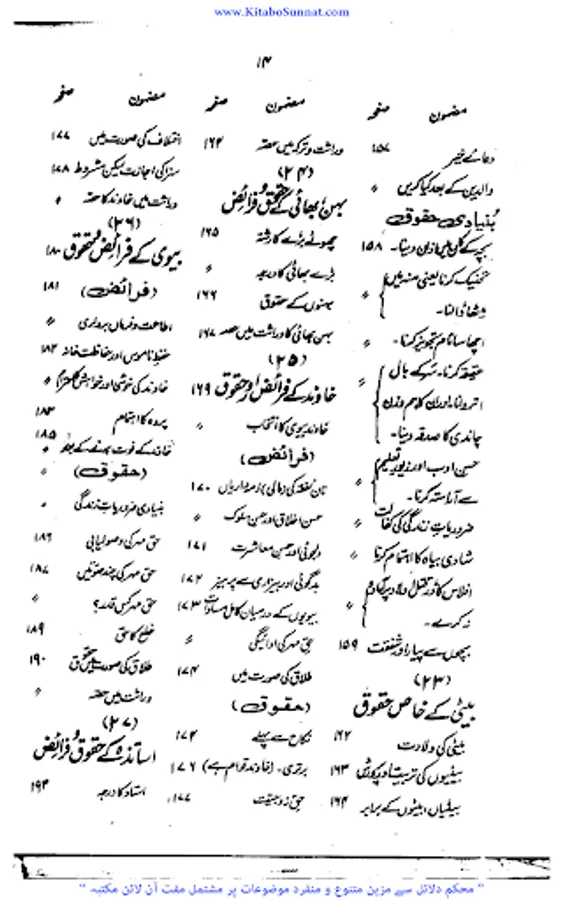 www.KitaboSunnat.com
۱۴
مضمون صفحہ
دعائے خیر ۱۵۷
والدین کے بعد کیا کریں 〃
بنیادی حقوق
بچے کے کان میں اذان دینا۔ ۱۵۸
تحنیک کرنا یعنی منہ میں
مٹھائی ڈالنا۔ 〃
اچھا سا نام تجویز کرنا۔ 〃
عقیقہ کرنا۔ سر کے بال
اتروانا اور ان کا ہم وزن
چاندی کا صدقہ دینا۔ 〃
حسن ادب اور زیور تعلیم
سے آراستہ کرنا۔ 〃
ضروریات زندگی کی کفالت 〃
شادی بیاہ کا اہتمام کرنا 〃
افلاس کا ڈر قتل اولاد پر آمادہ
نہ کرے۔ 〃
بچوں سے پیار اور شفقت ۱۵۹
(۲۳)
بیٹی کے خاص حقوق
بیٹی کی ولادت ۱۶۲
بیٹیوں کی تربیت اور پرورش ۱۶۳
بیٹیاں، بیٹوں کے برابر ۱۶۴
مضمون صفحہ
وراثت و ترکہ میں حصہ ۱۶۴
(۲۴)
بہن بھائی کے حقوق و فرائض
چھوٹے بڑے کا رشتہ ۱۶۵
بڑے بھائی کا درجہ 〃
بہنوں کے حقوق ۱۶۶
بہن بھائی کا وراثت میں حصہ ۱۶۷
(۲۵)
خاوند کے فرائض اور حقوق ۱۶۹
خاوند بیوی کا انتخاب 〃
(فرائض)
نان نفقہ کی (مالی) ذمہ داریاں ۱۷۰
حسن اخلاق اور حسن سلوک 〃
دلجوئی اور حسن معاشرت ۱۷۱
بدگوئی اور بیزاری سے پرہیز ۱۷۲
بیویوں کے درمیان کامل مساوات ۱۷۳
حق مہر کی ادائیگی 〃
طلاق کی صورت میں ۱۷۴
(حقوق)
نکاح سے پہلے ۱۷۴
برتری۔ (خاوند قوام ہے) ۱۷۶
حق زوجیت ۱۷۷
مضمون صفحہ
اختلاف کی صورت میں ۱۷۷
سزا کی اجازت لیکن مشروط ۱۷۸
وراثت میں خاوند کا حصہ 〃
(۲۶)
بیوی کے فرائض و حقوق ۱۸۰
(فرائض) ۱۸۱
اطاعت و فرماں برداری 〃
حفظ ناموس اور حفاظت خانہ ۱۸۲
خاوند کی خوشی اور خواہش کا احترام 〃
پردہ کا اہتمام ۱۸۳
خاوند کے فوت ہونے کے بعد ۱۸۵
(حقوق) 〃
بنیادی ضروریات زندگی 〃
حق مہر کی وصولیابی ۱۸۶
حق مہر کی چند صورتیں ۱۸۷
حق مہر کس قدر؟ 〃
خلع کا حق ۱۸۹
طلاق کی صورت میں حقوق ۱۹۰
وراثت میں حصہ 〃
(۲۷)
اساتذہ کے حقوق و فرائض
استاد کا درجہ ۱۹۴
" محکم دلائل سے مزین متنوع و منفرد موضوعات پر مشتمل مفت آن لائن مکتبہ "